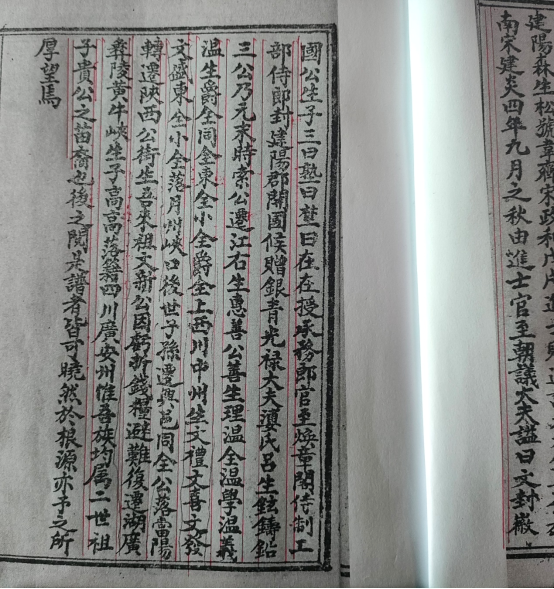 建陽森生松號韋齋宋政和戊戌
南宋建炎四年九月之秋由進士官至朝議大夫謚曰文封徽
國公生子三曰塾曰埜曰在在授承務郎官至煥章閣侍制工
部侍郎封建陽郡開國候贈銀青光祿大夫滇氏呂生鉉鑄鉛
三公乃元末時索公遷江右生惠善公善生理溫全溫學溫義
溫生爵全同全東全小全爵全上西川中州生文禮文喜文發
文盛東全小全落月州峽口後世子孫遷興邑同全公落當陽
轉遷陝西公衛生吾來祖文新公因虧折錢糧避難復遷湖廣
彝陵黃牛峽生子高高落籍四川廣安州惟吾族均屬二世祖
子貴公之苗裔也後之閱是譜者皆可曉然於根源亦予之所
厚望焉